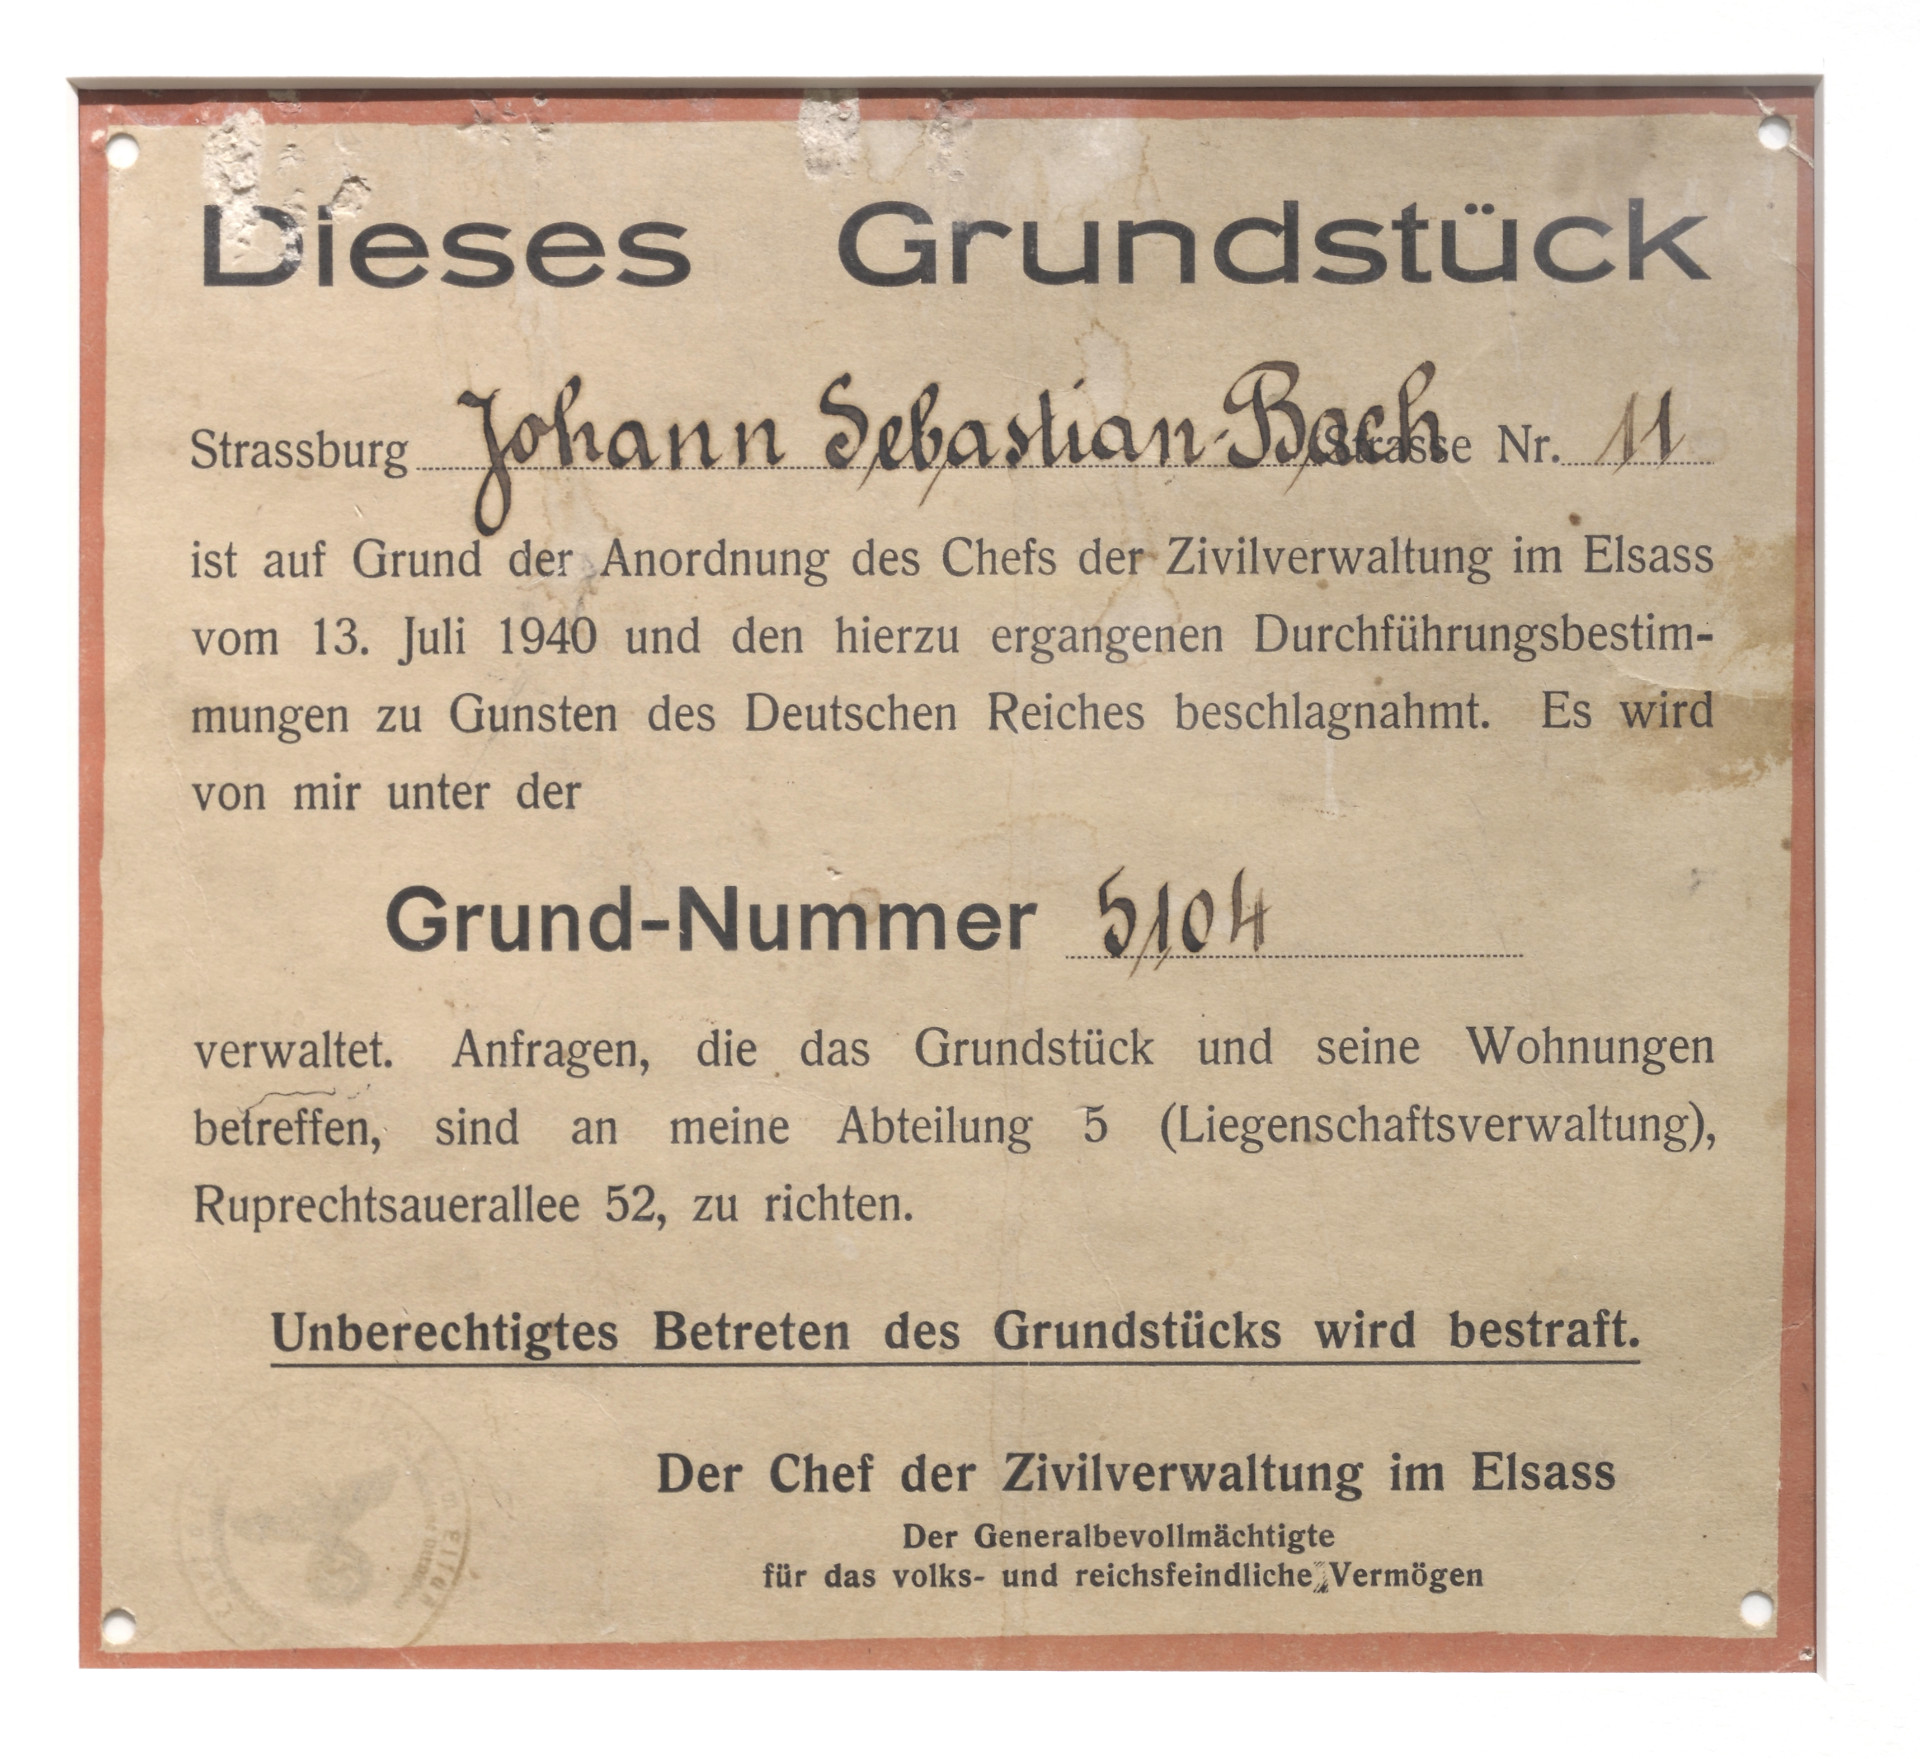 Dieses Grundstück
Strassburg Johann Sebastian-Bach Strasse Nr. 11
ist auf Grund der Anordnung des Chefs der Zivilverwaltung im Elsass
vom 13. Juli 1940 und den hierzu ergangenen Durchführungsbestim-
mungen zu Gunsten des Deutschen Reiches beschlagnahmt. Es wird
von mir unter der
Grund-Nummer 5104
verwaltet. Anfragen, die das Grundstück und seine Wohnungen
betreffen, sind an meine Abteilung 5 (Liegenschaftsverwaltung),
Ruprechtsauerallee 52, zu richten.
Unberechtigtes Betreten des Grundstücks wird bestraft.
Der Chef der Zivilverwaltung im Elsass
Der Generalbevollmächtigte
für das volks- und reichsfeindliche Vermögen